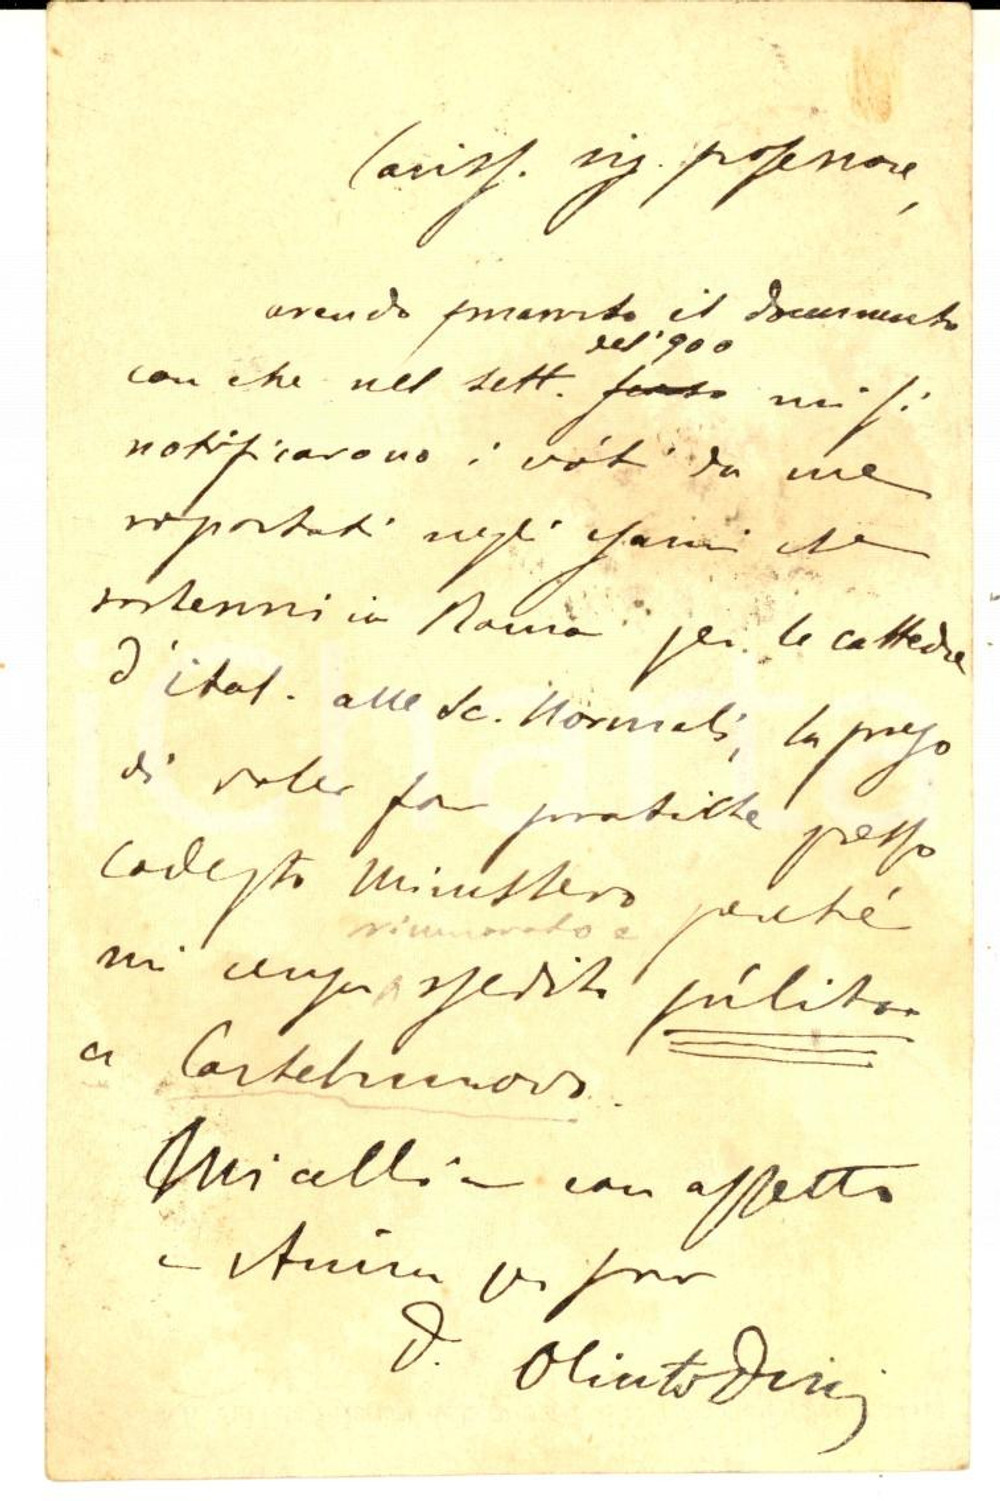 Cariss. sig. professore,
avendo smarrito il documento
del '900
con che nel sett. mi si
notificarono i vóti da me
riportati negli esami che
sostenni in Roma per le cattedre
d'ital. alle Sc. Normali, la prego
di voler far pratiche presso
codesto Ministero perché
rinnovato e
mi venga spedito súbito
a Castelnuovo.
Mi abbia con affetto
e stima per suo
D. Olinto Dini